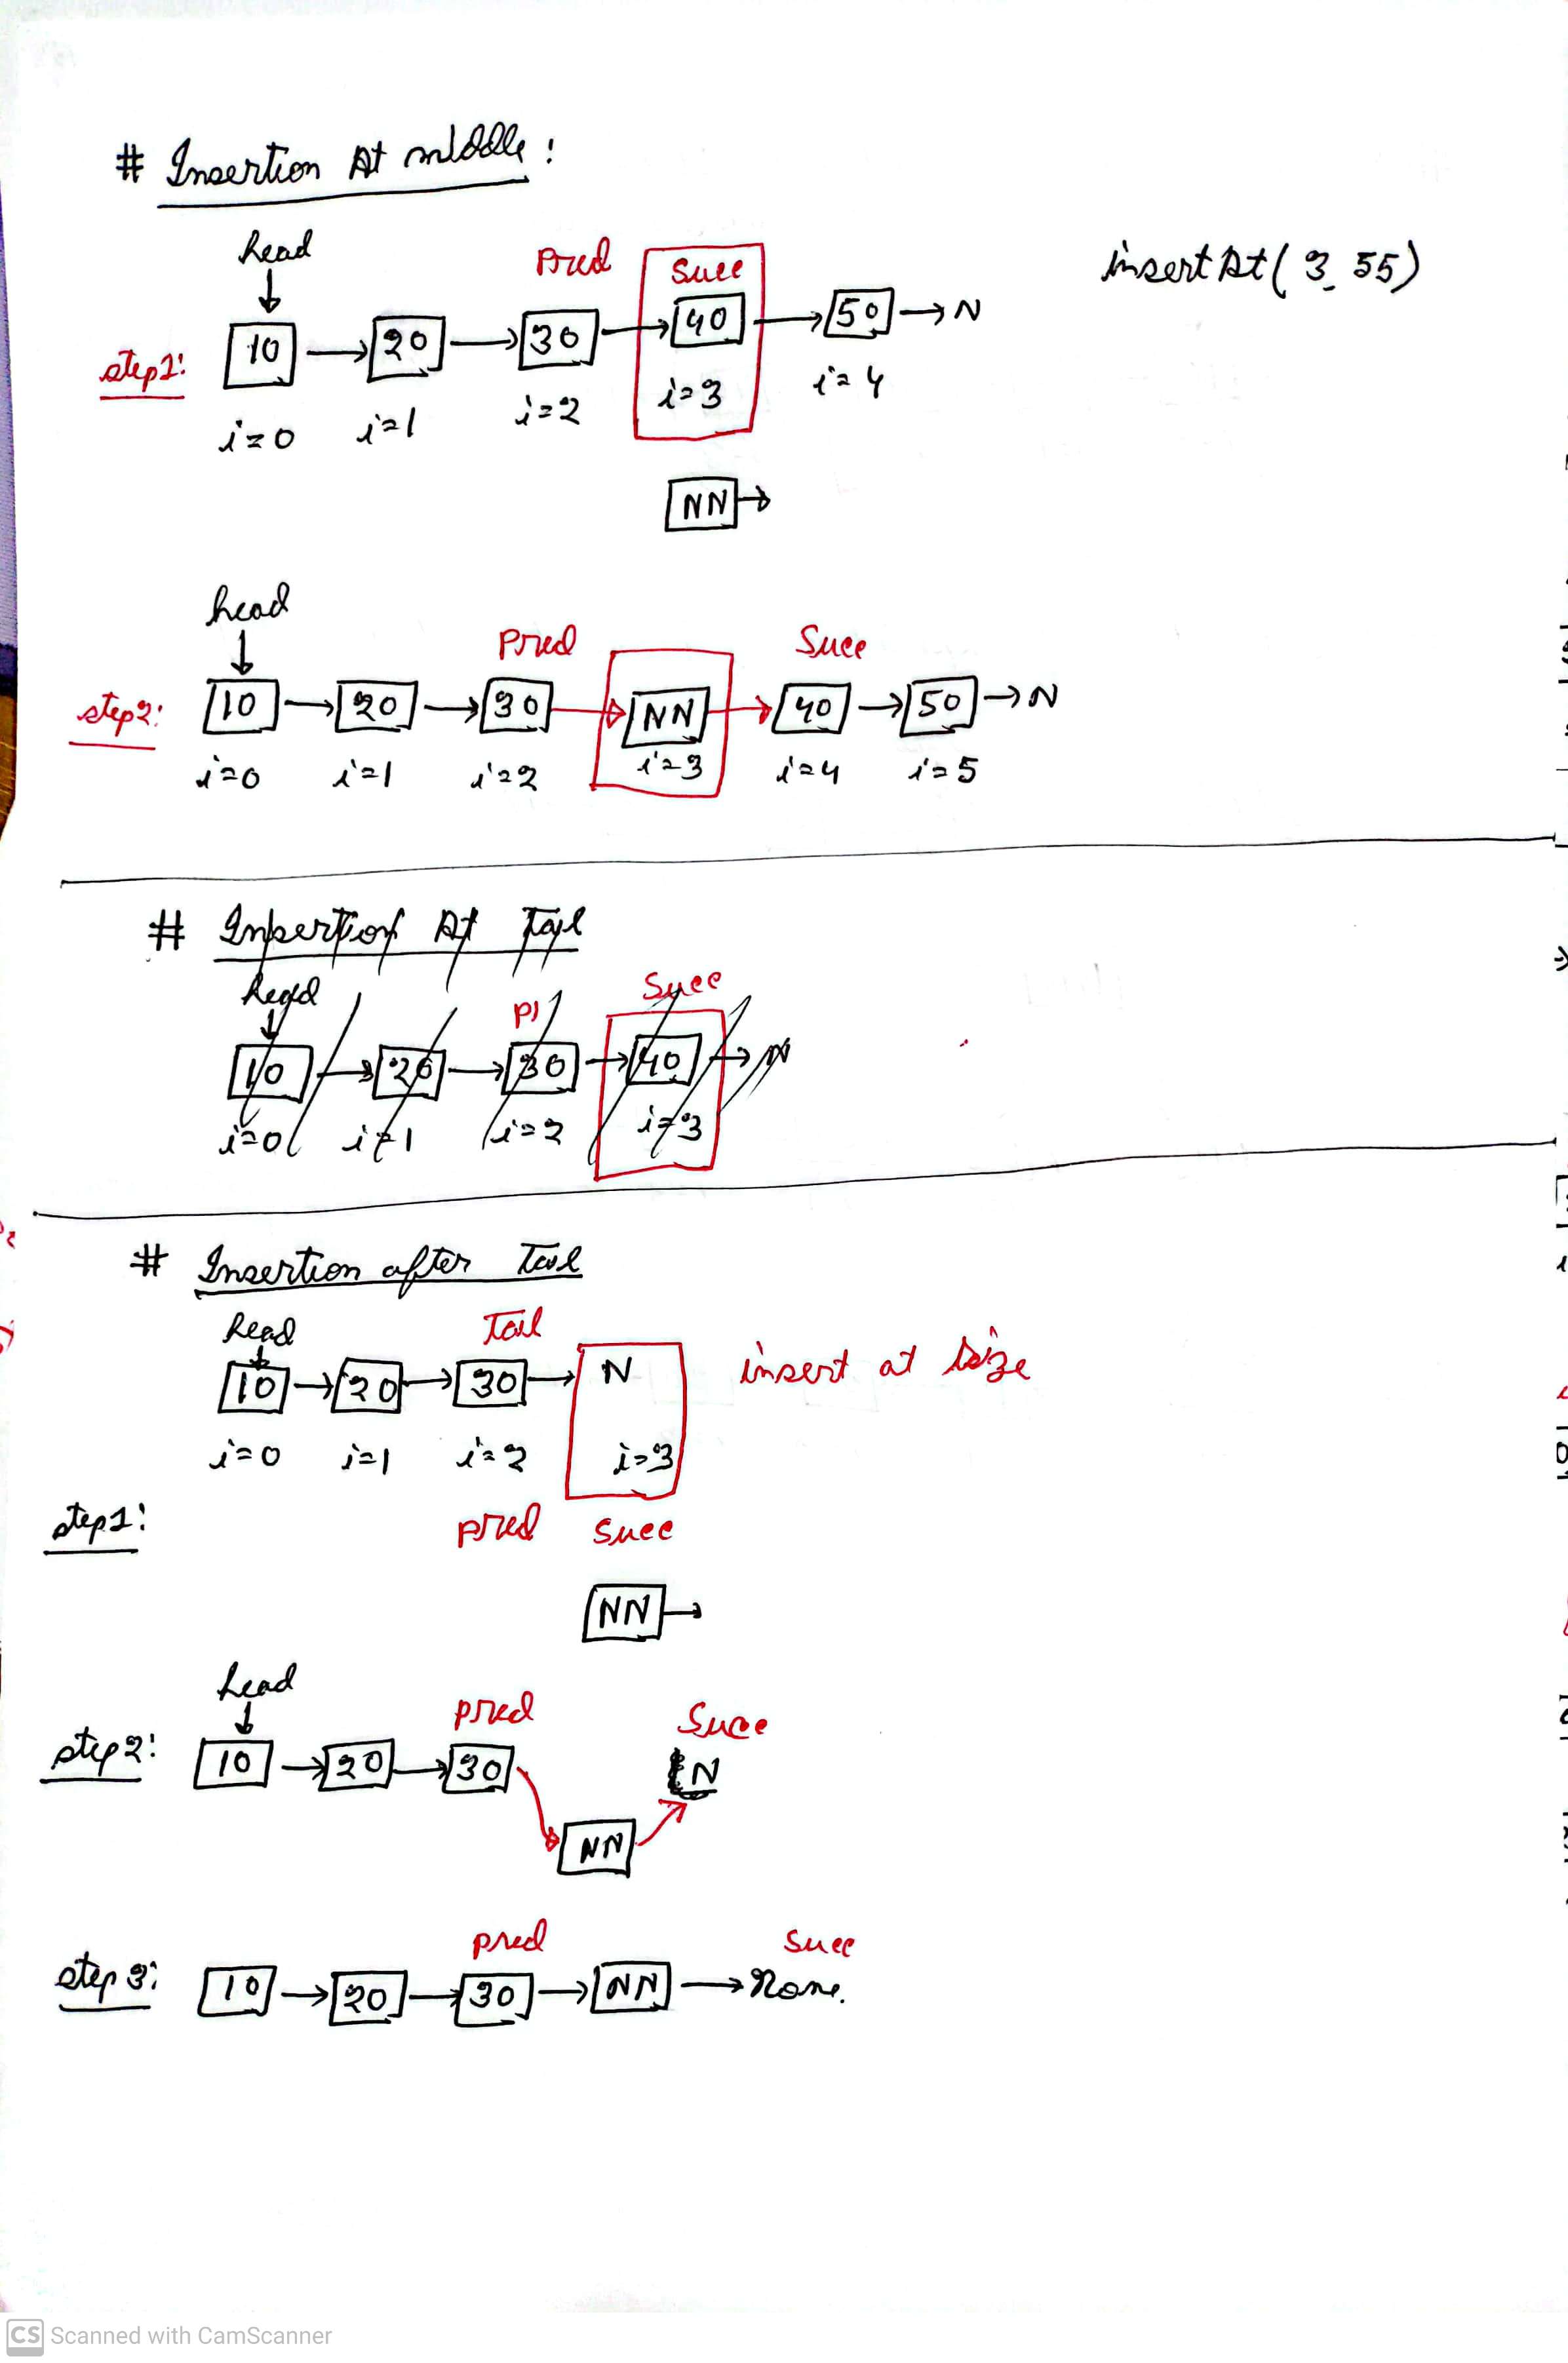 # Insertion At middle:
head
Pred Succ
insertAt(3, 55)
step1: 10 → 20 → 30 → 40 → 50 → N
i=0 i=1 i=2 i=3 i=4
NN →
head
Pred Succ
step2: 10 → 20 → 30 → NN → 40 → 50 → N
i=0 i=1 i=2 i=3 i=4 i=5
# Insertion At Tail
Head
Succ
10 → 20 → 30 → 40 → N
i=0 i=1 i=2 i=3
# Insertion after Tail
head Tail
10 → 20 → 30 → N insert at size
i=0 i=1 i=2 i=3
step1: pred Succ
NN →
head
pred Succ
step2: 10 → 20 → 30 N
NN
pred Succ
step 3: 10 → 20 → 30 → NN → None.
CS Scanned with CamScanner